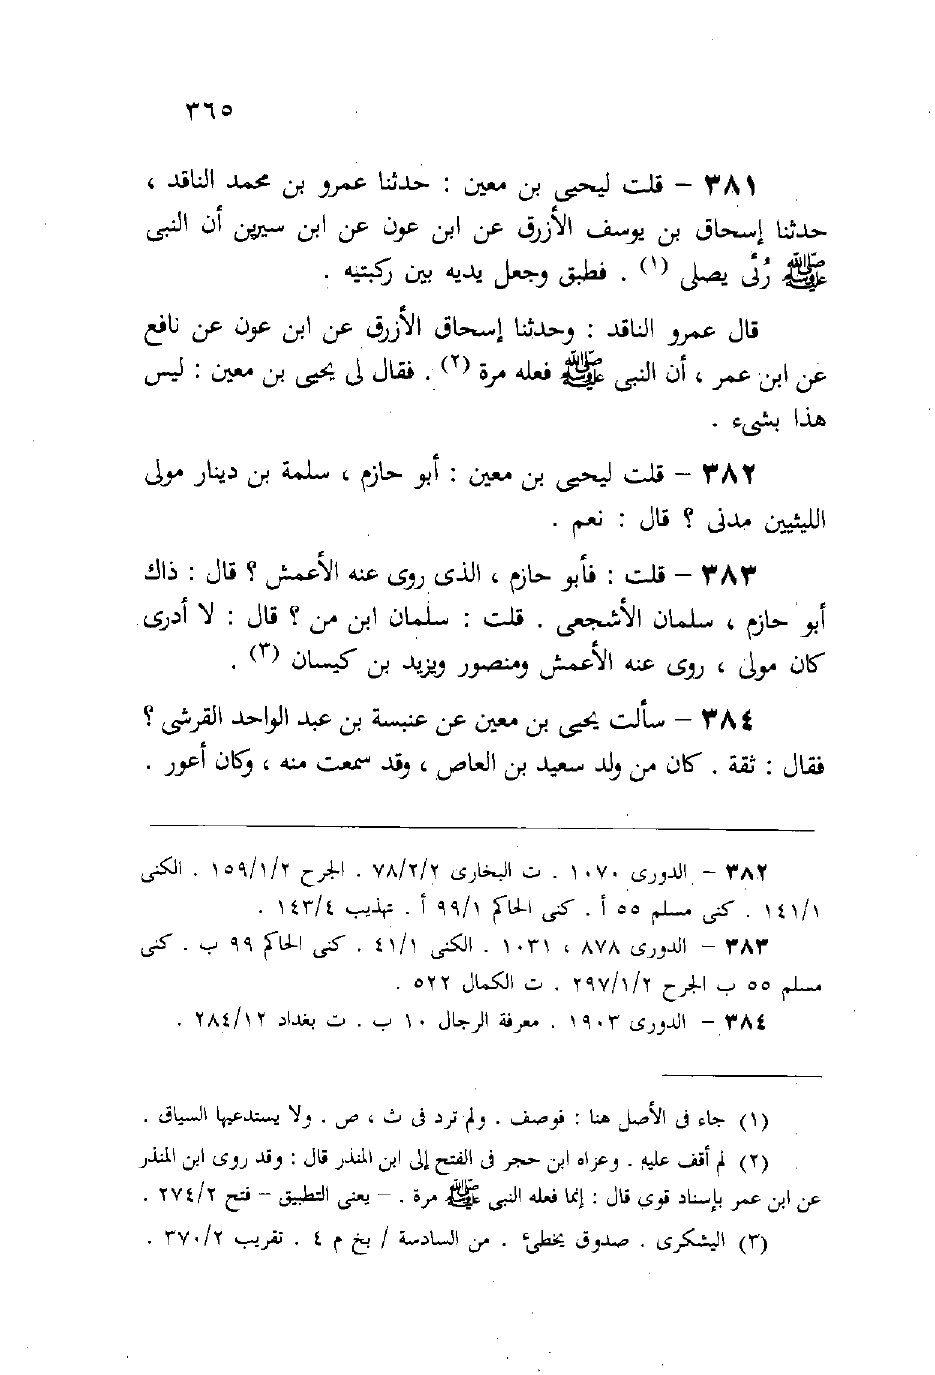 ٣٦٥
٣٨١ – قلت ليحيى بن معين : حدثنا عمرو بن محمد الناقد ،
حدثنا إسحاق بن يوسف الأزرق عن ابن عون عن ابن سيرين أن النبى
ﷺ رُئى يصلى (١) . فطبق وجعل يديه بين ركبتيه .
قال عمرو الناقد : وحدثنا إسحاق الأزرق عن ابن عون عن نافع
عن ابن عمر ، أن النبى ﷺ فعله مرة (٢) . فقال لى يحيى بن معين : ليس
هذا بشىء .
٣٨٢ – قلت ليحيى بن معين : أبو حازم ، سلمة بن دينار مولى
الليثيين مدنى ؟ قال : نعم .
٣٨٣ – قلت : فأبو حازم ، الذى روى عنه الأعمش ؟ قال : ذاك
أبو حازم ، سلمان الأشجعى . قلت : سلمان ابن من ؟ قال : لا أدرى
كان مولى ، روى عنه الأعمش ومنصور ويزيد بن كيسان (٣) .
٣٨٤ – سألت يحيى بن معين عن عنبسة بن عبد الواحد القرشى ؟
فقال : ثقة . كان من ولد سعيد بن العاص ، وقد سمعت منه ، وكان أعور .
٣٨٢ – الدورى ١٠٧٠ . ت البخارى ٧٨/٢/٢ . الجرح ١٥٩/١/٢ . الكنى
١٤١/١ . كنى مسلم ٥٥ أ . كنى الحاكم ٩٩/١ أ . تهذيب ١٤٣/٤ .
٣٨٣ – الدورى ٨٧٨ ، ١٠٣١ . الكنى ٤١/١ . كنى الحاكم ٩٩ ب . كنى
مسلم ٥٥ ب الجرح ٢٩٧/١/٢ . ت الكمال ٥٢٢ .
٣٨٤ – الدورى ١٩٠٣ . معرفة الرجال ١٠ ب . ت بغداد ٢٨٤/١٢ .
(١) جاء فى الأصل هنا : فوصف . ولم ترد فى ث ، ص . ولا يستدعيها السياق .
(٢) لم أقف عليه . وعزاه ابن حجر فى الفتح إلى ابن المنذر قال : وقد روى ابن المنذر
عن ابن عمر بإسناد قوى قال : إنما فعله النبى ﷺ مرة . – يعنى التطبيق – فتح ٢٧٤/٢ .
(٣) اليشكرى . صدوق يخطئ . من السادسة / بخ م ٤ . تقريب ٣٧٠/٢ .